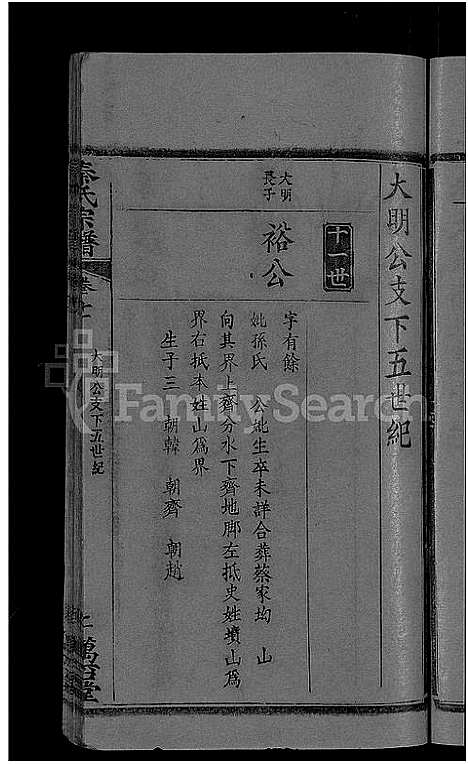 大明公支下五世紀
十一世
大明
長子
裕公
字有餘
妣孫氏　公妣生卒未詳合葬蔡家均　山
向其界上齊分水下齊地脚左抵史姓墳山為
界右抵本姓山為界
生子三　朝韓　朝齊　朝趙
秦氏宗譜
卷十
大明公支下五世紀
萬石堂
FamilySearch